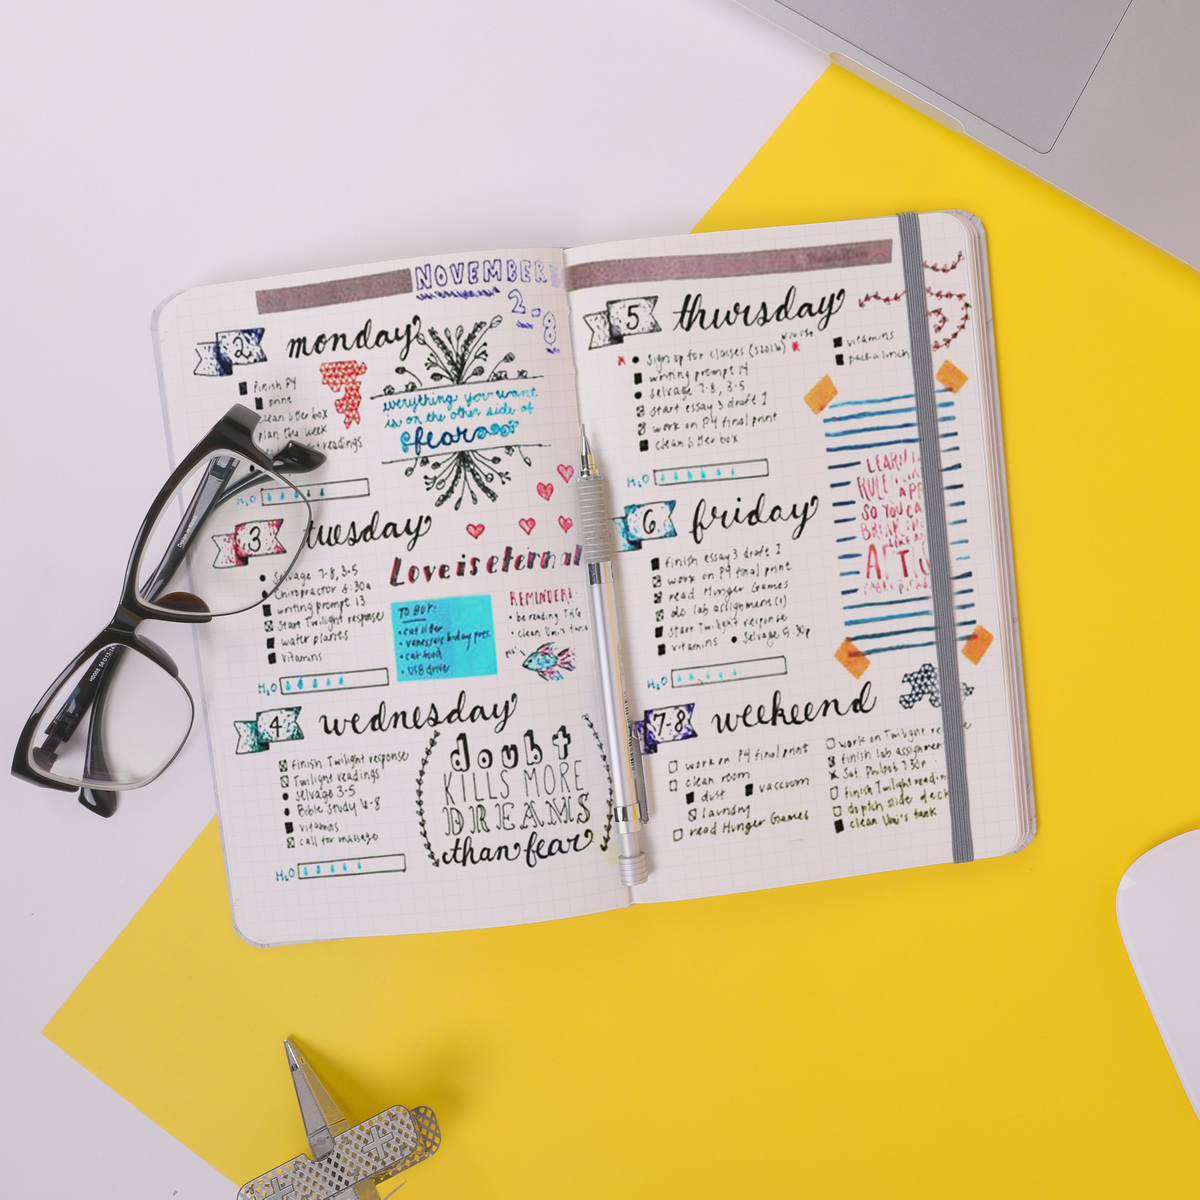 NOVEMBER
2-8
2 monday
finish P4
print
clean litter box
plan the week
readings
H2O
everything you want
is on the other side of
fear
3 tuesday
Selvage 7-8, 3-5
Chiropractor
writing prompt 13
start Twilight response
water plants
vitamins
H2O
Love is eternal
TO BUY:
• cat litter
• vanessa's bday pres.
• cat food
• USB drive
REMINDER!:
• be reading THG
• clean Uni's tank
4 wednesday
finish Twilight response
Twilight readings
selvage 3-5
Bible study 6-8
vitamins
call for massage
H2O
doubt
KILLS MORE
DREAMS
than fear
5 thursday
sign up for classes (S2016)
writing prompt 14
selvage 7-8, 3-5
start essay 3 draft 1
work on P4 final print
clean litter box
vitamins
pack a lunch
H2O
LEARN
RULE
SO YOU CA
BREAK
A.T.
6 friday
finish essay 3 draft 1
work on P4 final print
read Hunger Games
do lab assignment(s)
start Twilight response
vitamins • Selvage 5:30p
H2O
7-8 weekend
work on P4 final print
clean room
dust vaccuum
laundry
read Hunger Games
work on Twilight re
finish lab assignmen
Sat. Philpot 7:30p
finish Twilight readin
do pich slide deck
clean Uni's tank